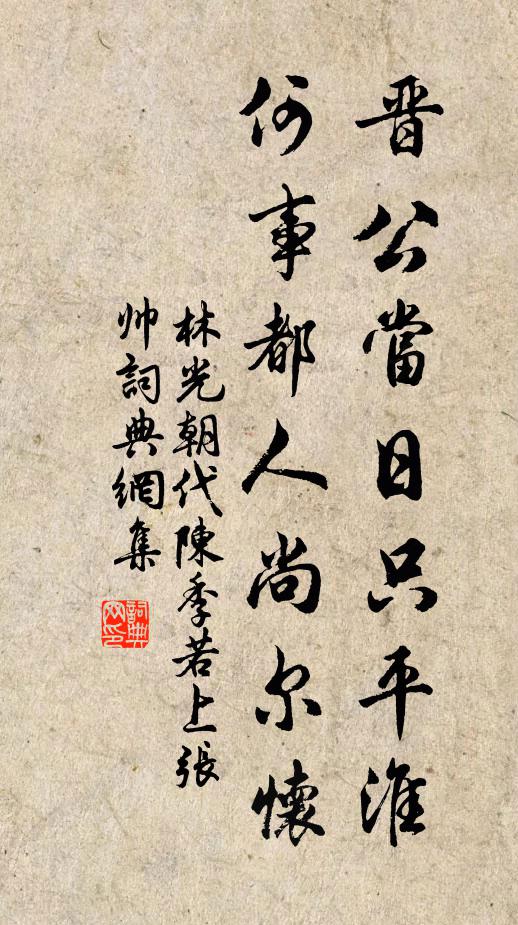 晋公當日只平淮
何事都人尚尔懷
林光朝代陳季若上張
帅詞典網集
詞典网印